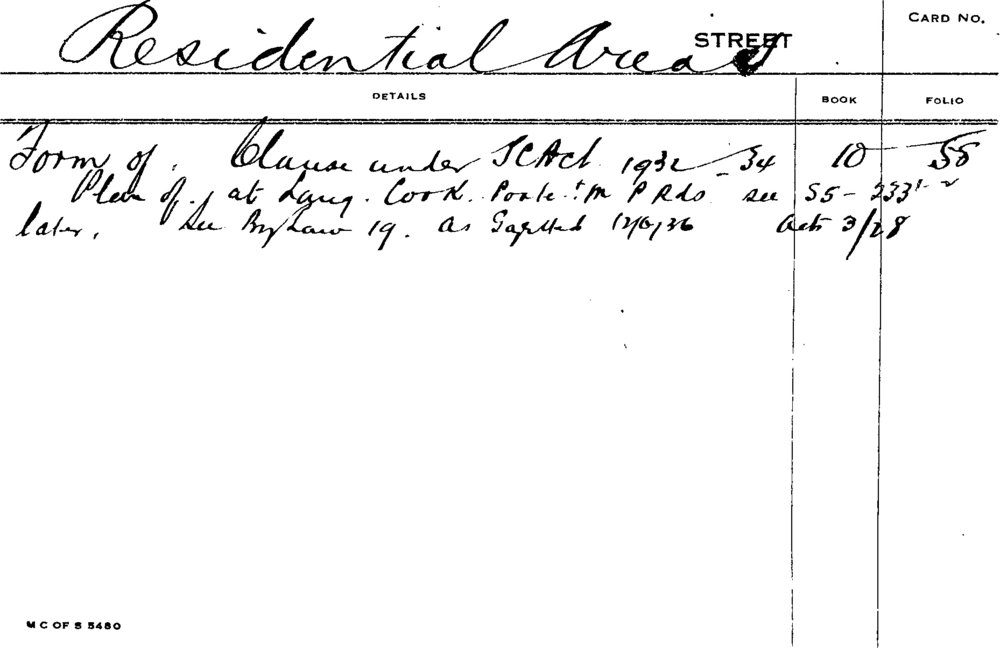 CARD NO.
Residential Areas STREET
DETAILS BOOK FOLIO
Form of. Clause under SCAct 1932-34 10 58
Plan of. at Lang. Cook. Poate + M P Rds see 55-233 1-2
later. See By Law 19. as Gazetted Acts 3/28
M C OF S 5480